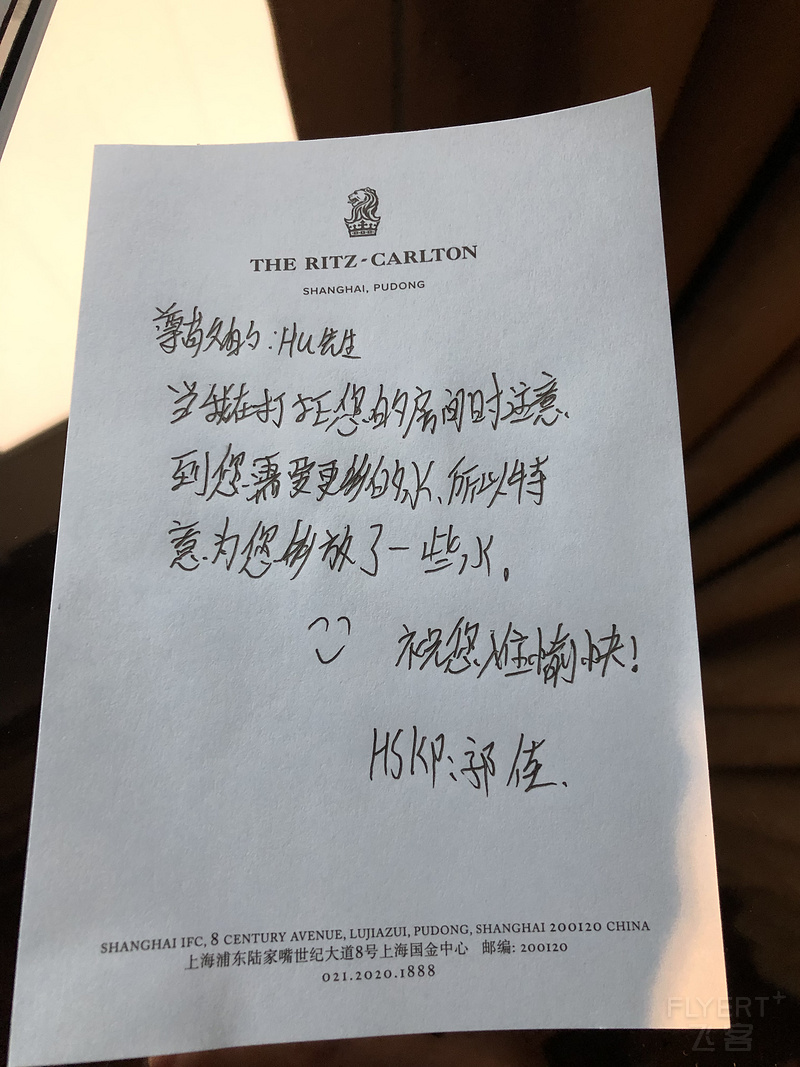 THE RITZ-CARLTON
SHANGHAI, PUDONG
尊敬的:HU先生
当我在打扫您的房间时注意
到您需要更多的水、所以特
意为您多放了一些水。
祝您入住愉快!
HSKP:郭佳.
SHANGHAI IFC, 8 CENTURY AVENUE, LUJIAZUI, PUDONG, SHANGHAI 200120 CHINA
上海浦东陆家嘴世纪大道8号上海国金中心 邮编: 200120
021.2020.1888
FLYERT+
飞客